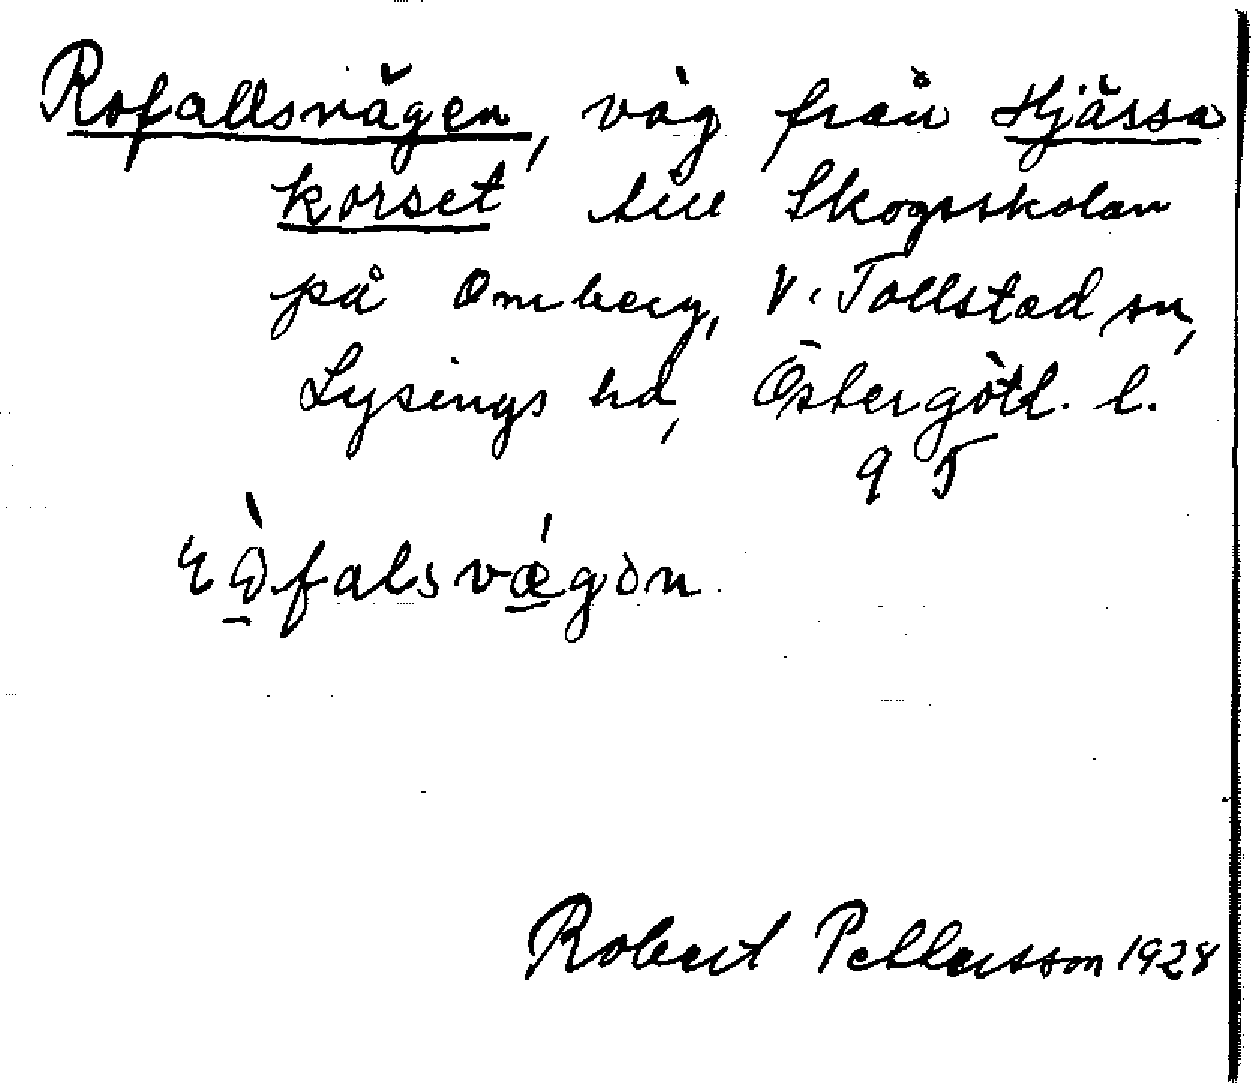 Rofallsvägen, väg från Hjässa
korset till Skogsskolan
på Omberg, V. Tollstad sn,
Lysings hd, Östergötl. l.
95
Robert Pettersson 1928